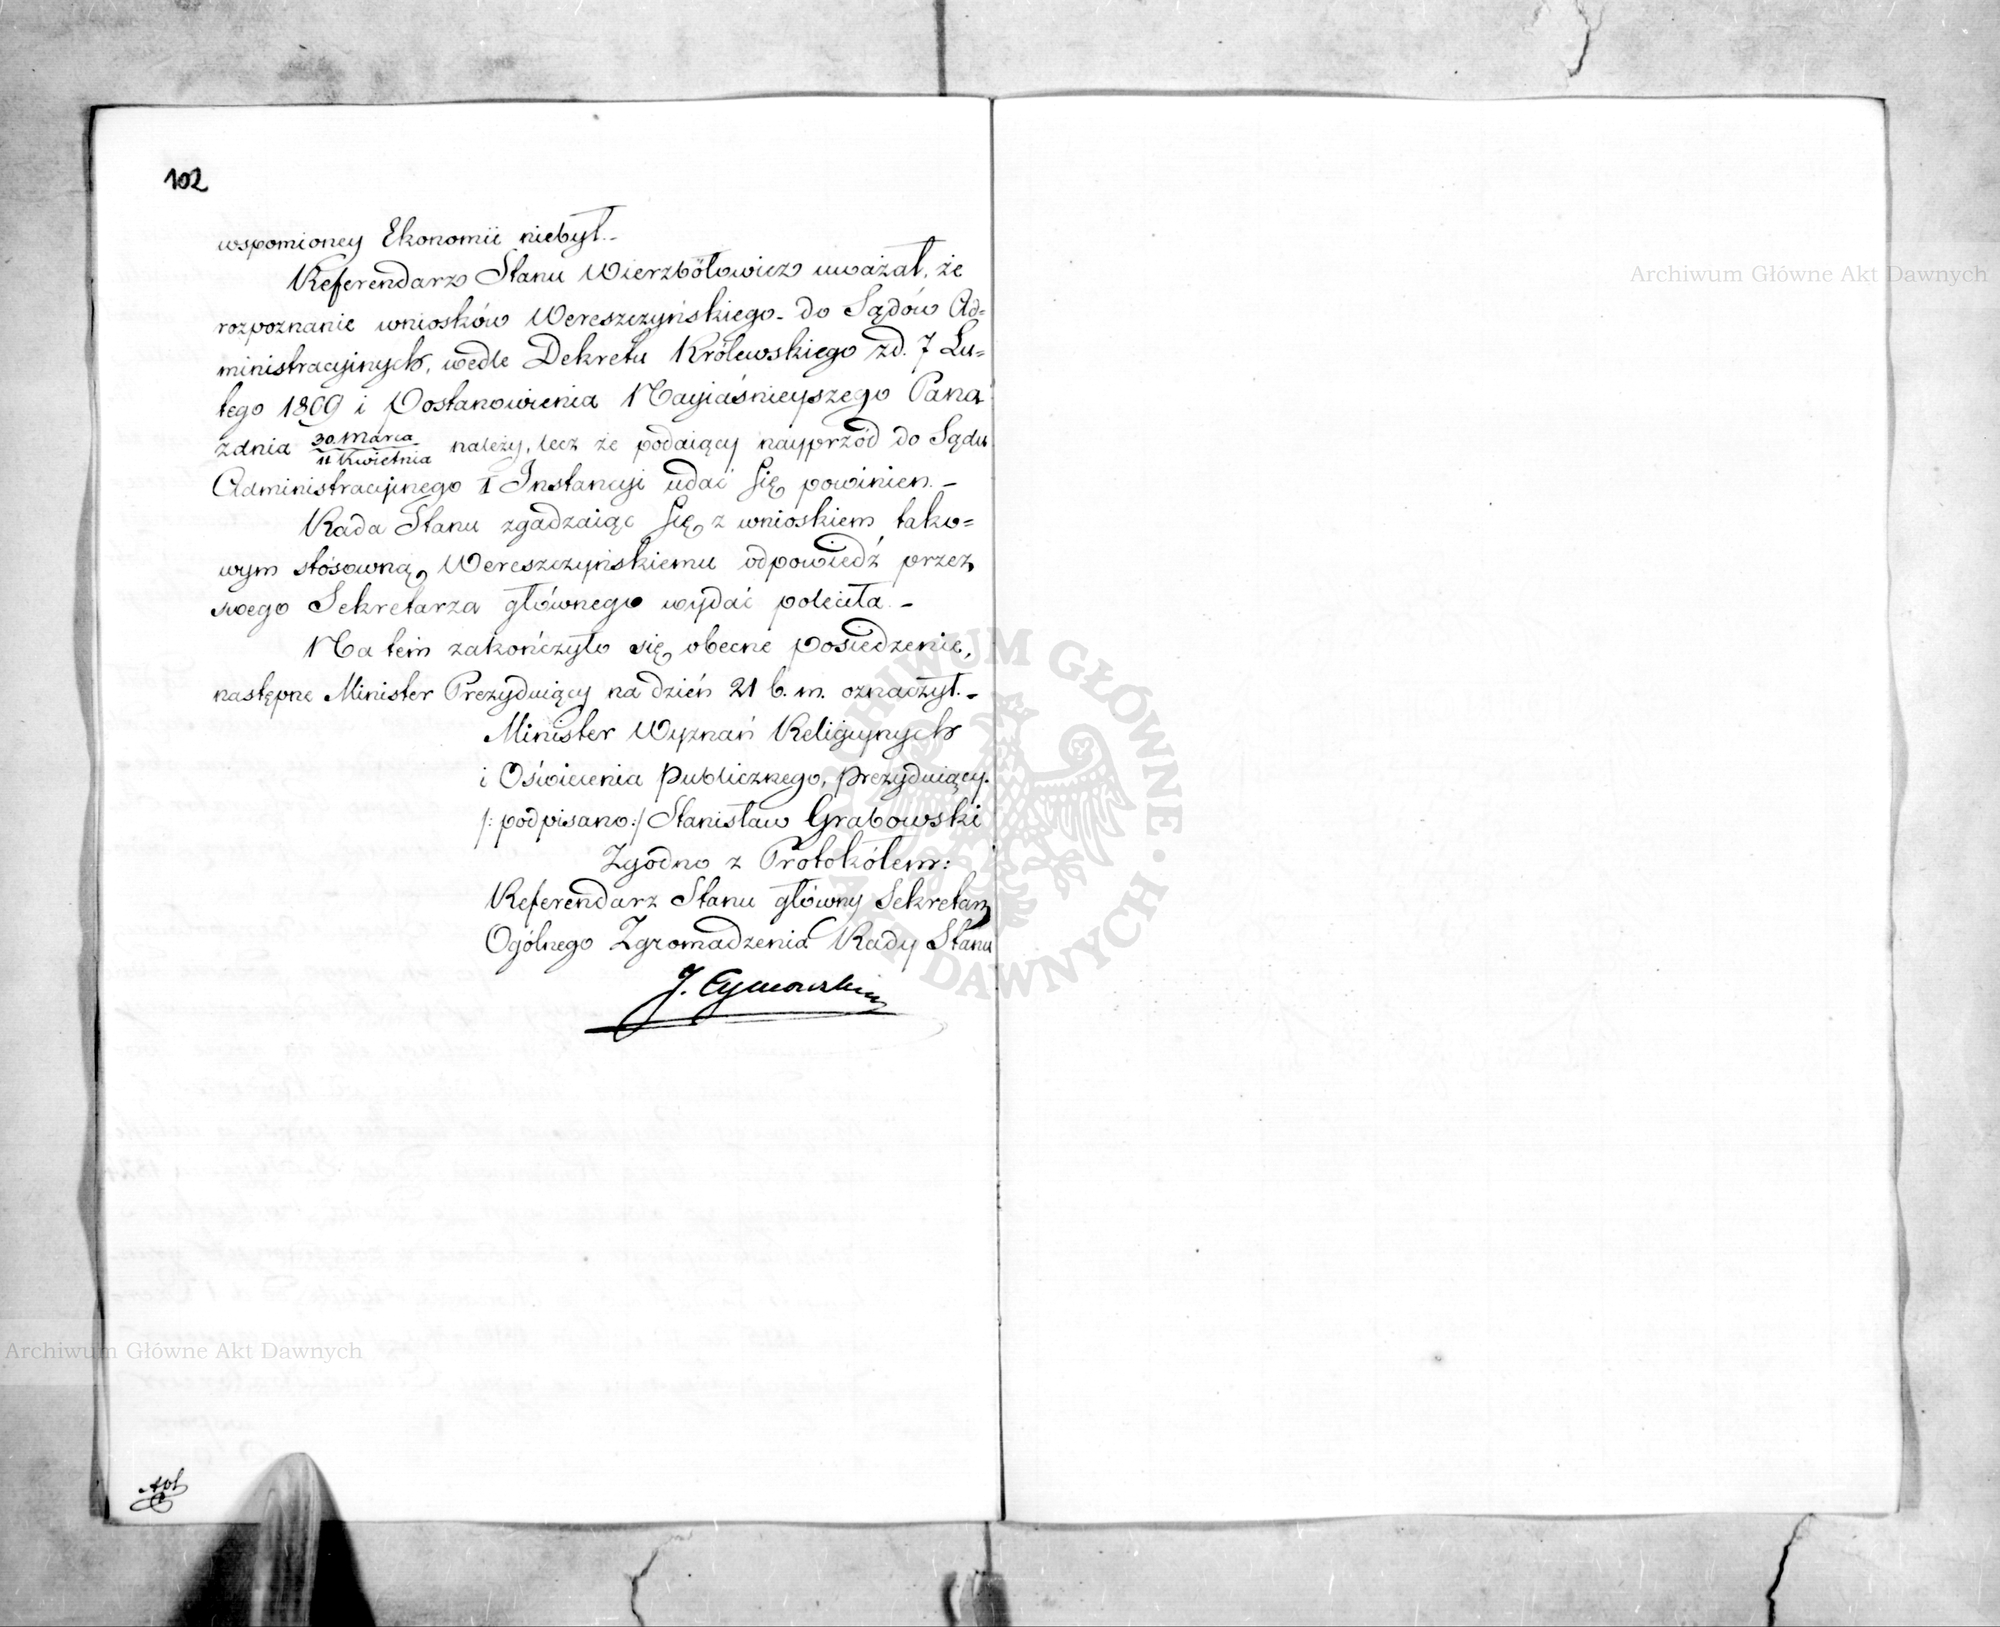 102
wspomioney Ekonomii niebył.-
Referendarz Stanu Wierzbółowicz uważał, że
rozpoznanie wniosków Wereszczyńskiego do Sądów Ad=
ministracyinych, wedle Dekretu Królewskiego zd. 7 Lu=
tego 1809 i Postanowienia Nayiaśnieyszego Pana
zdnia 30 Marca / 11 Kwietnia należy, lecz że podaiący nayprzód do Sądu
Administracyinego I Instancyi udać się powinien.-
Rada Stanu zgadzaiąc się z wnioskiem tako=
wym stósowną Wereszczyńskiemu odpowiedź przez
swego Sekretarza głównego wydać poleciła.-
Na tem zakończyło się obecne posiedzenie,
następne Minister Prezyduiący na dzień 21 b. m. oznaczył.-
Minister Wyznań Religiynych
i Oświecenia Publicznego, prezyduiący.
/: podpisano:/ Stanisław Grabowski
Zgodno z Protokółem:
Referendarz Stanu główny Sekretarz
Ogólnego Zgromadzenia Rady Stanu
J.
Archiwum Główne Akt Dawnych
Archiwum Główne Akt Dawnych
ARCHIWUM GŁÓWNE AKT DAWNYCH